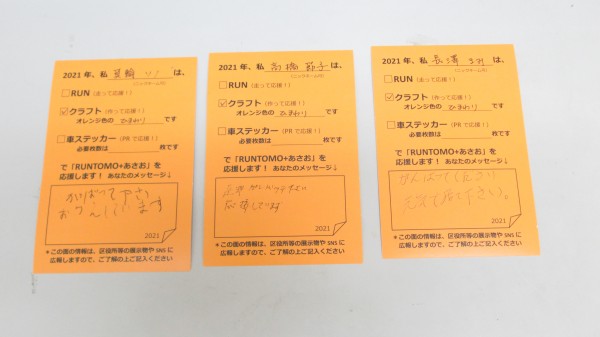 2021年、私 は、
(ニックネーム可)
□RUN (走って応援!)
☑クラフト (作って応援!)
オレンジ色の ひまわり です
□車ステッカー (PRで応援!)
必要枚数は 枚です
で「RUNTOMO+あさお」を
応援します! あなたのメッセージ↓
がんばって下さい
おうえんしています
2021
*この面の情報は、区役所等の展示物や SNS に
広報しますので、ご了解の上ご記入ください
2021年、私 高橋 節子 は、
(ニックネーム可)
□RUN (走って応援!)
☑クラフト (作って応援!)
オレンジ色の ひまわり です
□車ステッカー (PRで応援!)
必要枚数は 枚です
で「RUNTOMO+あさお」を
応援します! あなたのメッセージ↓
応援しています
2021
*この面の情報は、区役所等の展示物や SNS に
広報しますので、ご了解の上ご記入ください
2021年、私 長澤 は、
(ニックネーム可)
□RUN (走って応援!)
☑クラフト (作って応援!)
オレンジ色の ひまわり です
□車ステッカー (PRで応援!)
必要枚数は 枚です
で「RUNTOMO+あさお」を
応援します! あなたのメッセージ↓
がんばって下さい
下さい。
2021
*この面の情報は、区役所等の展示物や SNS に
広報しますので、ご了解の上ご記入ください